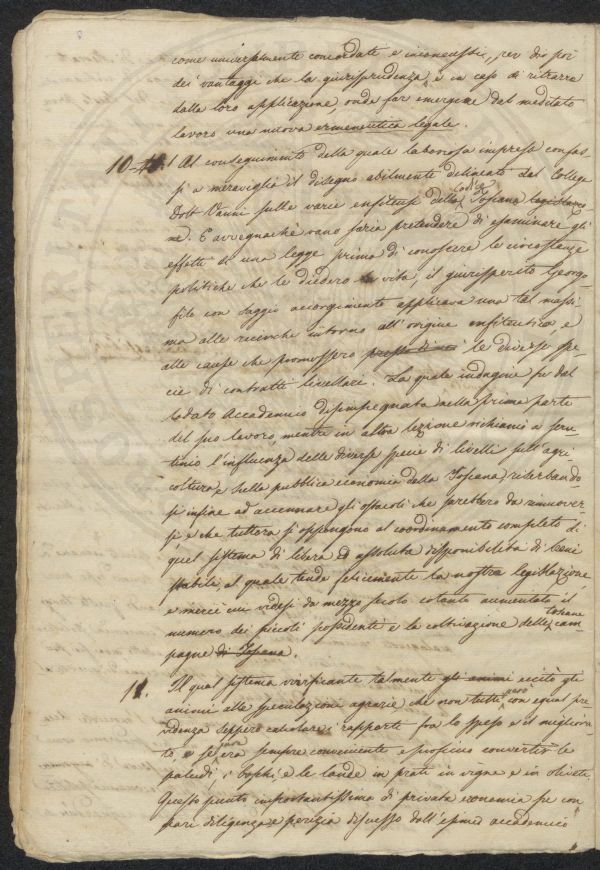 come universalmente concordate e inconcussi, per dir poi
dei vantaggi che la giurisprudenza è in caso di ritrarre
dalla loro applicazione, onde far emergere dal meditato
lavoro una nuova ermeneutica legale.
10. Al conseguimento della quale laboriosa impresa confas-
si a meraviglia il disegno abilmente delineato dal Collega
Dott. Vanni sulle varie enfiteusi della Toscana legislazio
ne. E avvegnachè vano saria pretendere di esaminare gli
effetti di una legge prima di conoscere le circostanze
politiche che le diedero vita, il giurisperito Georgo-
filo con saggio accorgimento applicava una tal massi-
ma alle ricerche intorno all'origine enfiteutica, e
alle cause che promossero le diverse spe-
cie di contratti livellari. La quale indagine fu dal
lodato Accademico disimpegnata nella prima parte
del suo lavoro, mentre in altra lezione richiamò a scru-
tinio l'influenza delle diverse specie di livelli sull'agri
coltura, e sulla pubblica economia della Toscana, riserbando-
si infine ad accennare gli ostacoli che sarebbero da rimuover-
si e che tuttora si oppongono al coordinamento completo di
quel sistema di libera ed assoluta disponibilità di beni
stabili, al quale tende felicemente la nostra legislazione,
e mercè cui videsi da mezzo secolo cotanto aumentato il
numero dei piccoli possidenti e la coltivazione delle toscane cam-
pagne di Toscana.
11. Il qual sistema vivificante talmente gli animi eccitò gli
animi alle speculazioni agrarie che non tutti però con egual pre-
videnza seppero calcolare i rapporti fra lo speso e il migliora-
to, e se era sempre conveniente e proficuo convertir le
paludi, i boschi e le lande in prati in vigne e in oliveti.
Questo punto importantissimo di privata economia fu con
pari diligenza e perizia discusso dall'esimio accademico